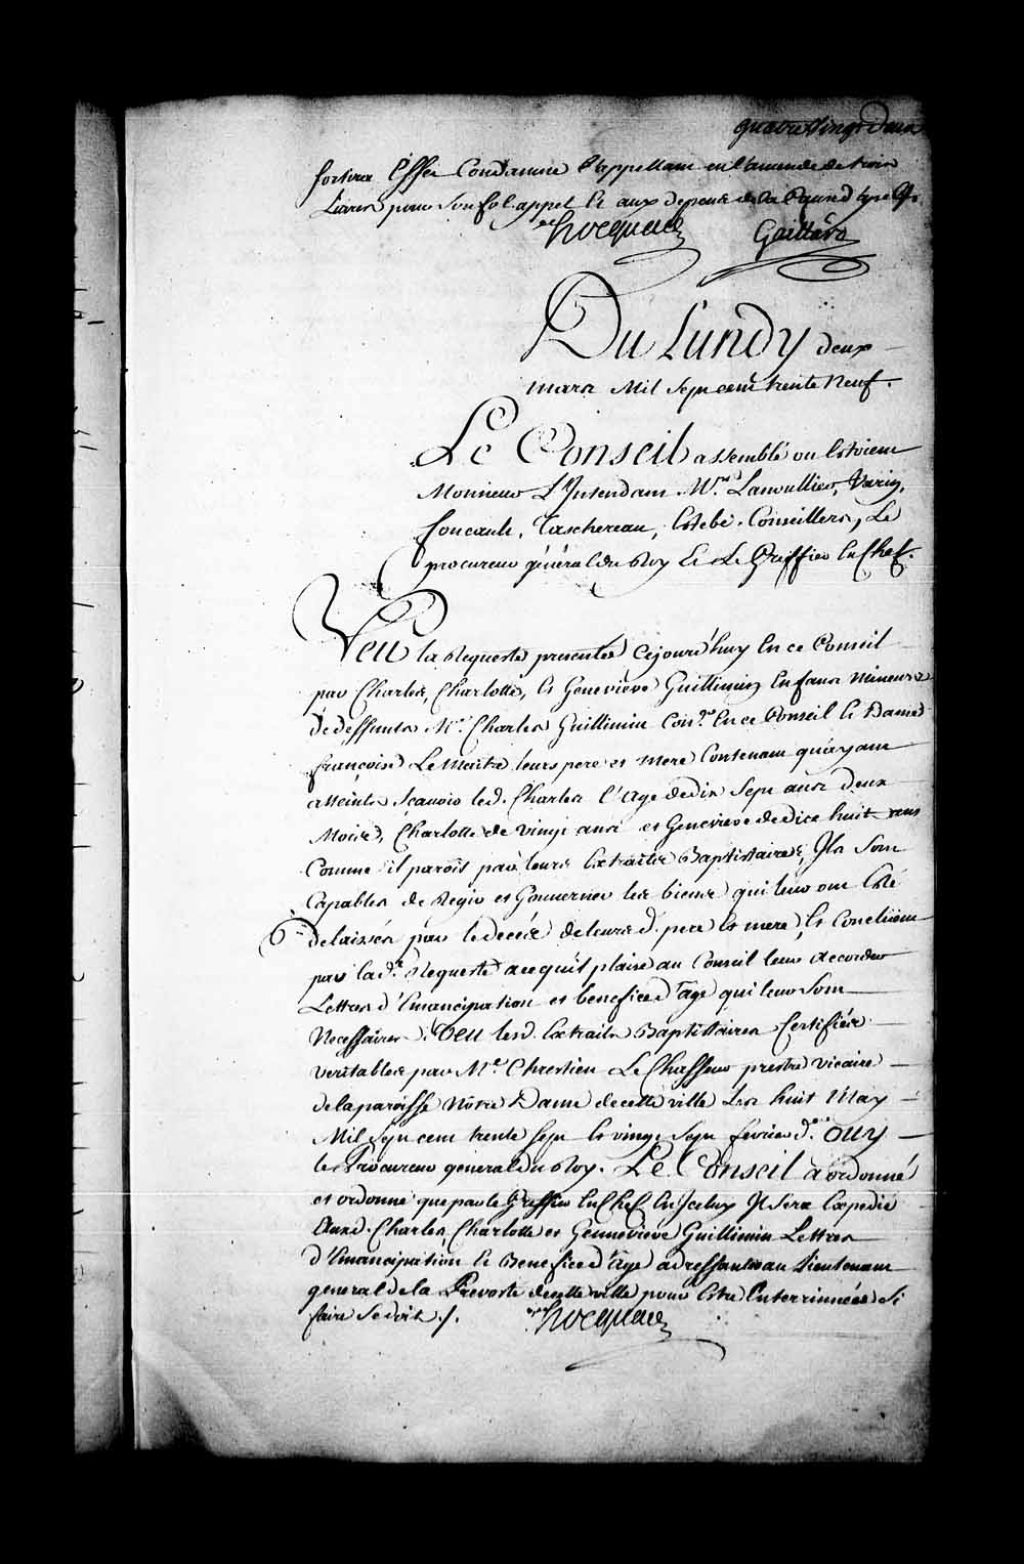 quatre Vingt Deux
sortira Effet Condamne l'appellant en l'amende de trois
Livres pour son fol appel Et aux depens de la Cause d'appel
hocquart Gaillard
Du Lundy deux
mars Mil Sept cent trente Neuf.
Le Conseil assemblé ou Estoient
Monsieur L'Intendant Mrs. Lanoullier, Varin,
foucault, Taschereau, Estebe. Conseillers, Le
procureur général du Roy Et Le Greffier En Chef.
Veu la Requeste presentée Cejourd'huy En ce Conseil
par Charles, Charlotte, Et Geneviéve Guillimin Enfans mineurs
de deffunts Mr. Charles Guillimin Coner. En ce Conseil Et Dame
françoise Le Maitre leurs pere et mere Contenant qu'ayant
atteints Scavoir led. Charles l'Age de dix Sept ans deux
Mois, Charlotte de Vingt ans et Genevieve de dice huit ans
Comme il paroit par leurs Extraits Baptistaires, Ils Sont
Capables de Regir et Gouverner les biens qui leur ont Eté
delaissés par le deces de leurs d. pere Et mere, Et Concluent
par lad. Requeste a ce qu'il plaise au Conseil leur accorder
Lettres d'Emancipation et benefice d'age qui leur Sont
Necessaires. Veu lesd. Extraits Baptistaires Certifiés
veritables par Mr. Chrestien Le Chasseur prestre vicaire
de la paroisse Nôtre Dame de cette ville Les huit May
Mil Sept cent trente Sept Et vingt Sept fevrier d.er Ouy
le Procureur general du Roy. Le Conseil a ordonné
et ordonne que par le Greffier En Chef En Iceluy Il Sera Expedié
Auxd. Charles, Charlotte et Gennevieve Guillimin Lettres
d'Emancipation Et Benefice d'Age adressantes au Lieutenant
general de la Prevosté de cette ville pour Estre Enterrinnées Si
faire Se doit ./. hocquart